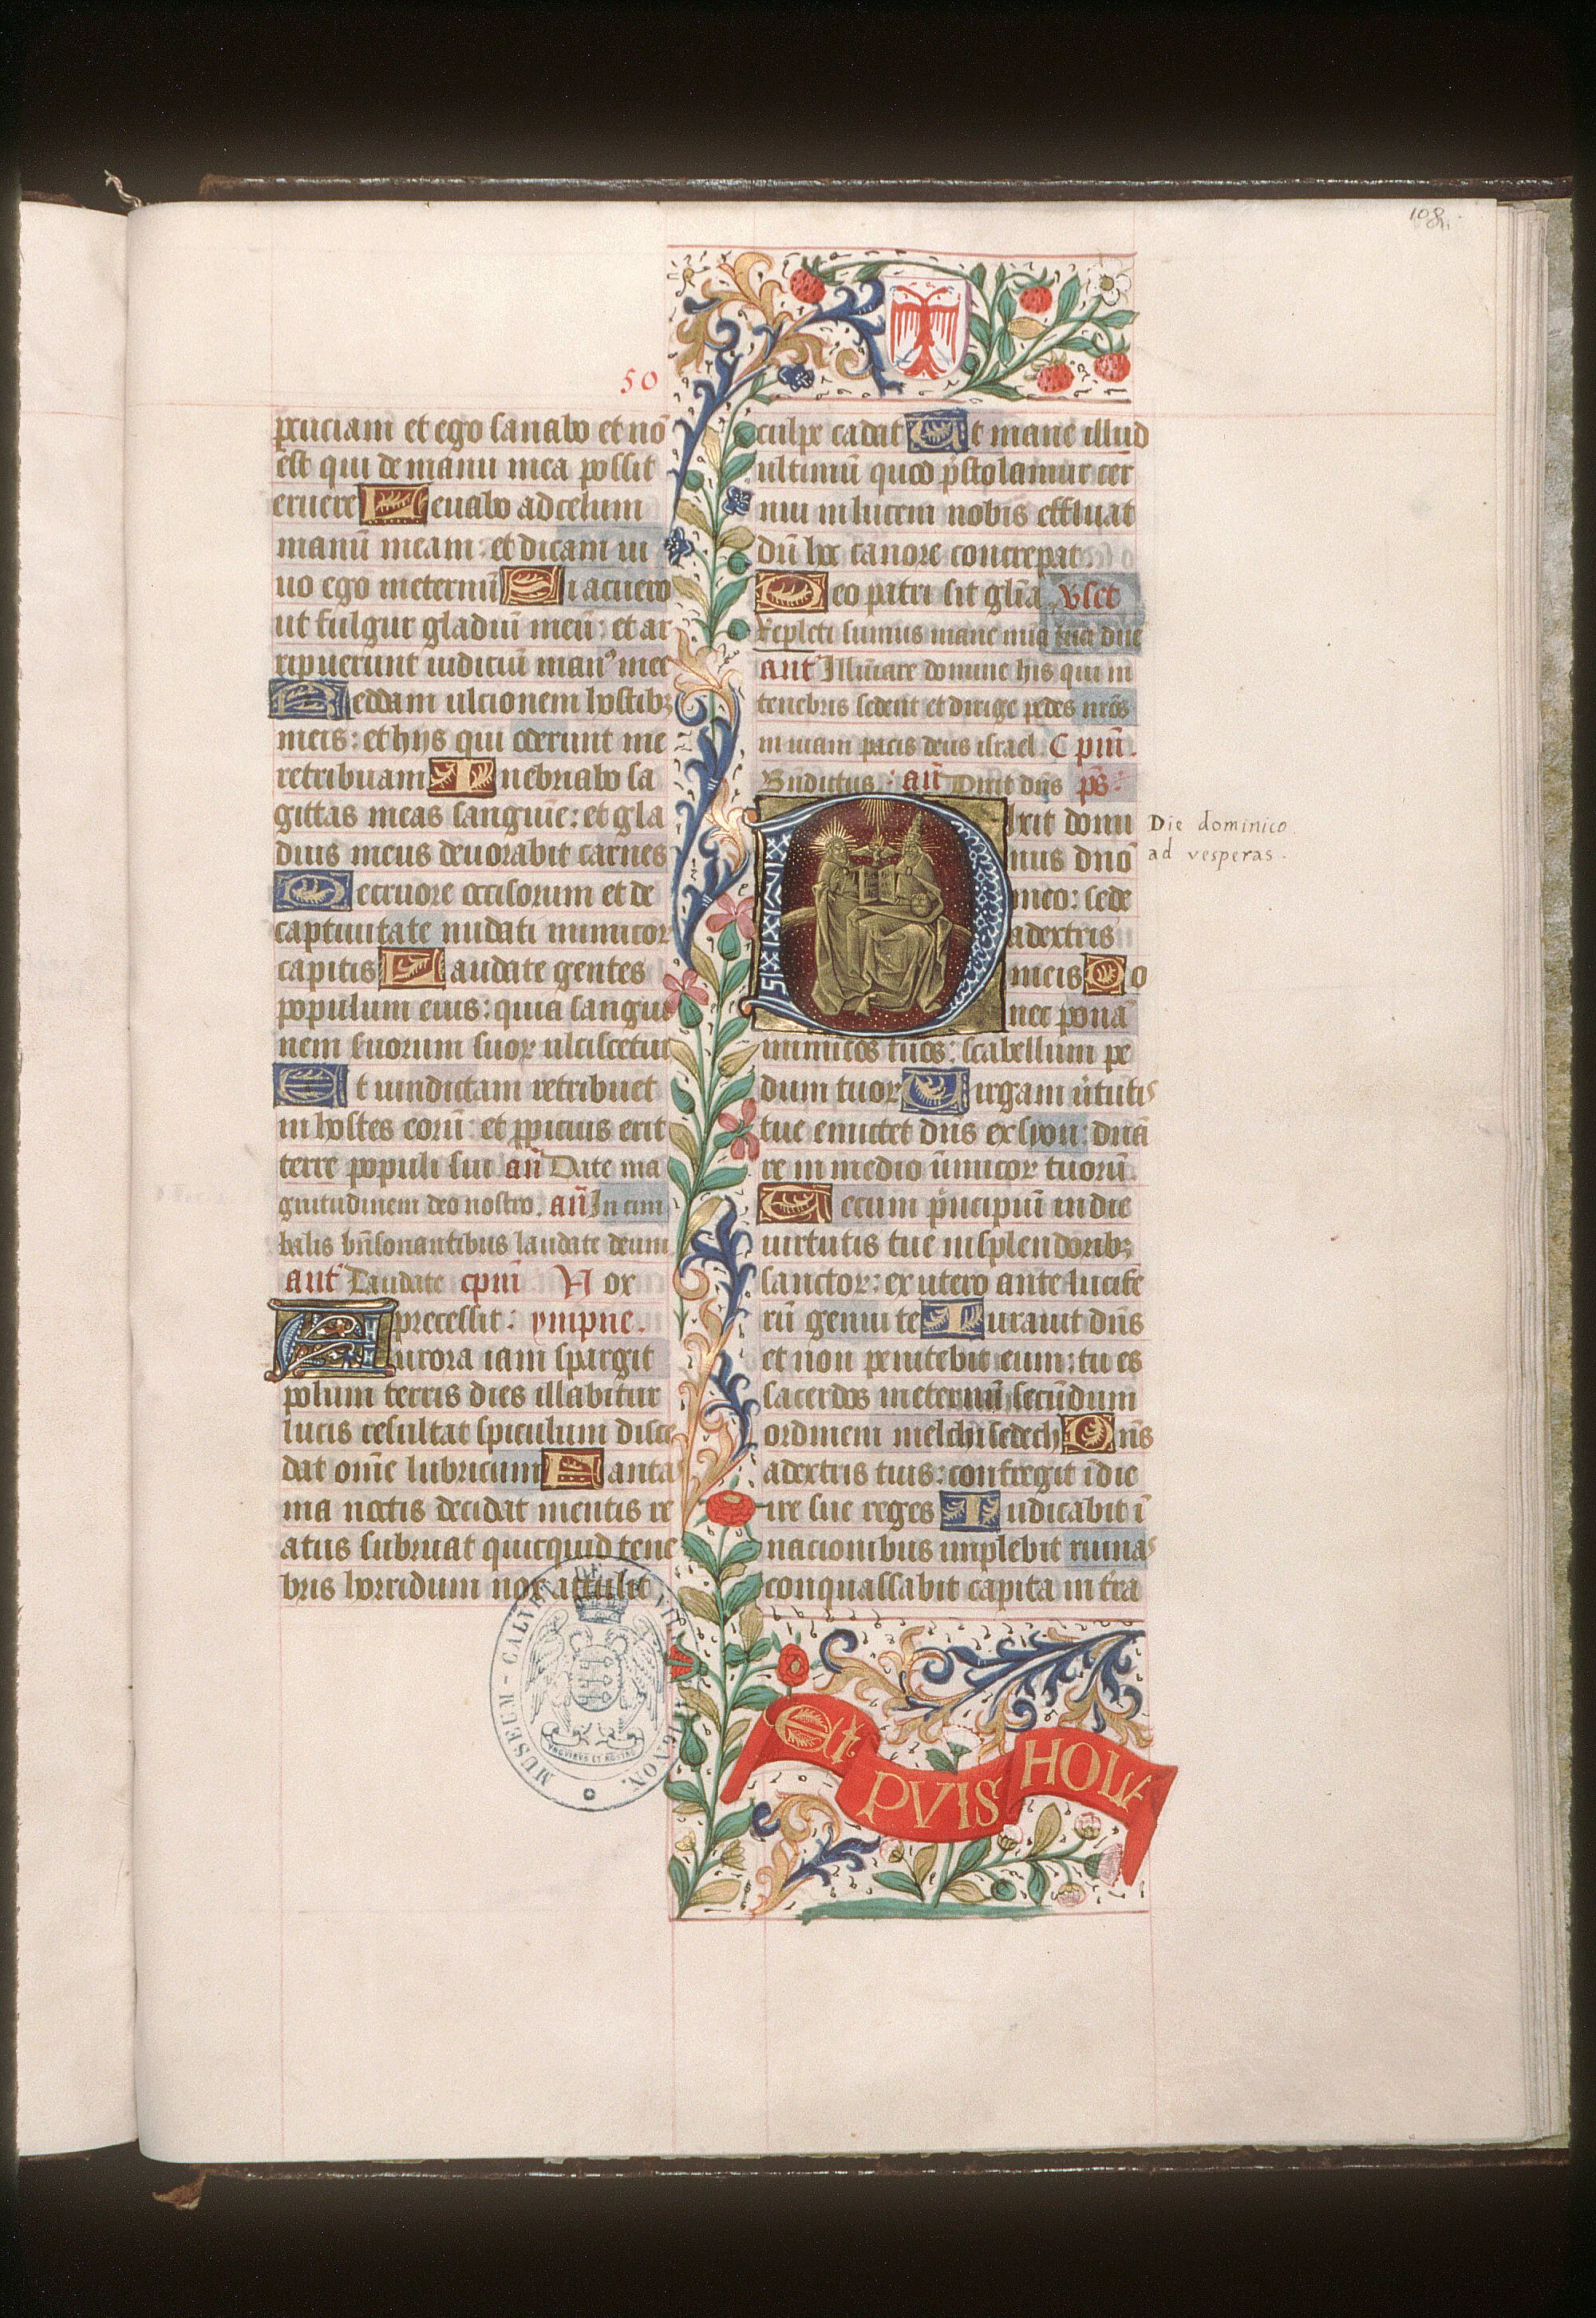 108
50
percuciam et ego sanabo et nō
est qui de manu mea possit
eruere Leuabo ad celum
manū meam: et dicam ui
uo ego ineternū Si acuero
ut fulgur gladiū meū: et ar
ripuerunt iudiciū manꝰ mee
Reddam ulcionem hostibꝫ
meis: et hijs qui oderunt me
retribuam Inebriabo sa
gittas meas sanguīe: et gla
dius meus deuorabit carnes
De cruore occisorum et de
captiuitate nudati inimicoꝝ
capitis Laudate gentes
populum eius: quia sangui
nem suorum suoꝝ ulciscetur
Et uindictam retribuet
in hostes eorū: et ꝓpicius erit
terre populi sui an̄ Date ma
gnitudinem deo nostro. an̄ In cim
balis bn̄sonantibus laudate deum
ant̄ Laudate cpm̄ Nox
precessit: ympne.
Aurora iam spargit
polum terris dies illabitur
lucis resultat spiculum disce
dat om̄e lubricum Fanta
ma noctis decidat mentis re
atus subruat quicquid tene
bris horridum nox attulit
culpe cadat Et mane illud
ultimū quod p̄stolamur cer
nui in lucem nobis effluat
dū hoc canore concrepat
Deo patri sit glīa vset
Repleti sumus mane mīa tua dn̄e
ant̄ Illūinare domine his qui in
tenebris sedent et dirige pedes nr̄os
in uiam pacis deus israel. C pm̄.
Bn̄dictus: an̄ Dixit dn̄s ps̄:
Dixit domi
nus dn̄o
meo: sede
a dextris
meis Do
nec ponā
inimicos tuos: scabellum pe
dum tuoꝝ Uirgam ūtutis
tue emittet dn̄s ex syon: dn̄a
re in medio inimicoꝝ tuorū.
Tecum p̄ncipiū in die
uirtutis tue in splendoribꝫ
sanctoꝝ: ex utero ante lucife
rū genui te Iurauit dn̄s
et non penitebit eum: tu es
sacerdos ineternū secūdum
ordinem melchisedech Dn̄s
a dextris tuis: confregit ī die
ire sue reges Iudicabit ī
nacionibus implebit ruinas
conquassabit capita in t̄ra
Die dominico
ad vesperas.
Et PVIS HOLA
MUSEUM-CALVET DE LA VILLE D'AVIGNON.
UNGUIBUS ET ROSTRO